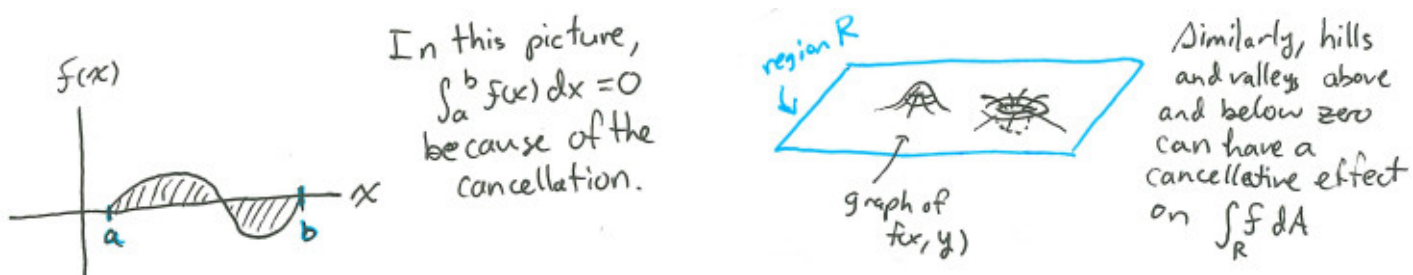 f(x)
x
a
b
In this picture,
∫_a^b f(x) dx = 0
because of the
cancellation.
region R
graph of
f(x, y)
Similarly, hills
and valleys above
and below zero
can have a
cancellative effect
on ∫_R f dA